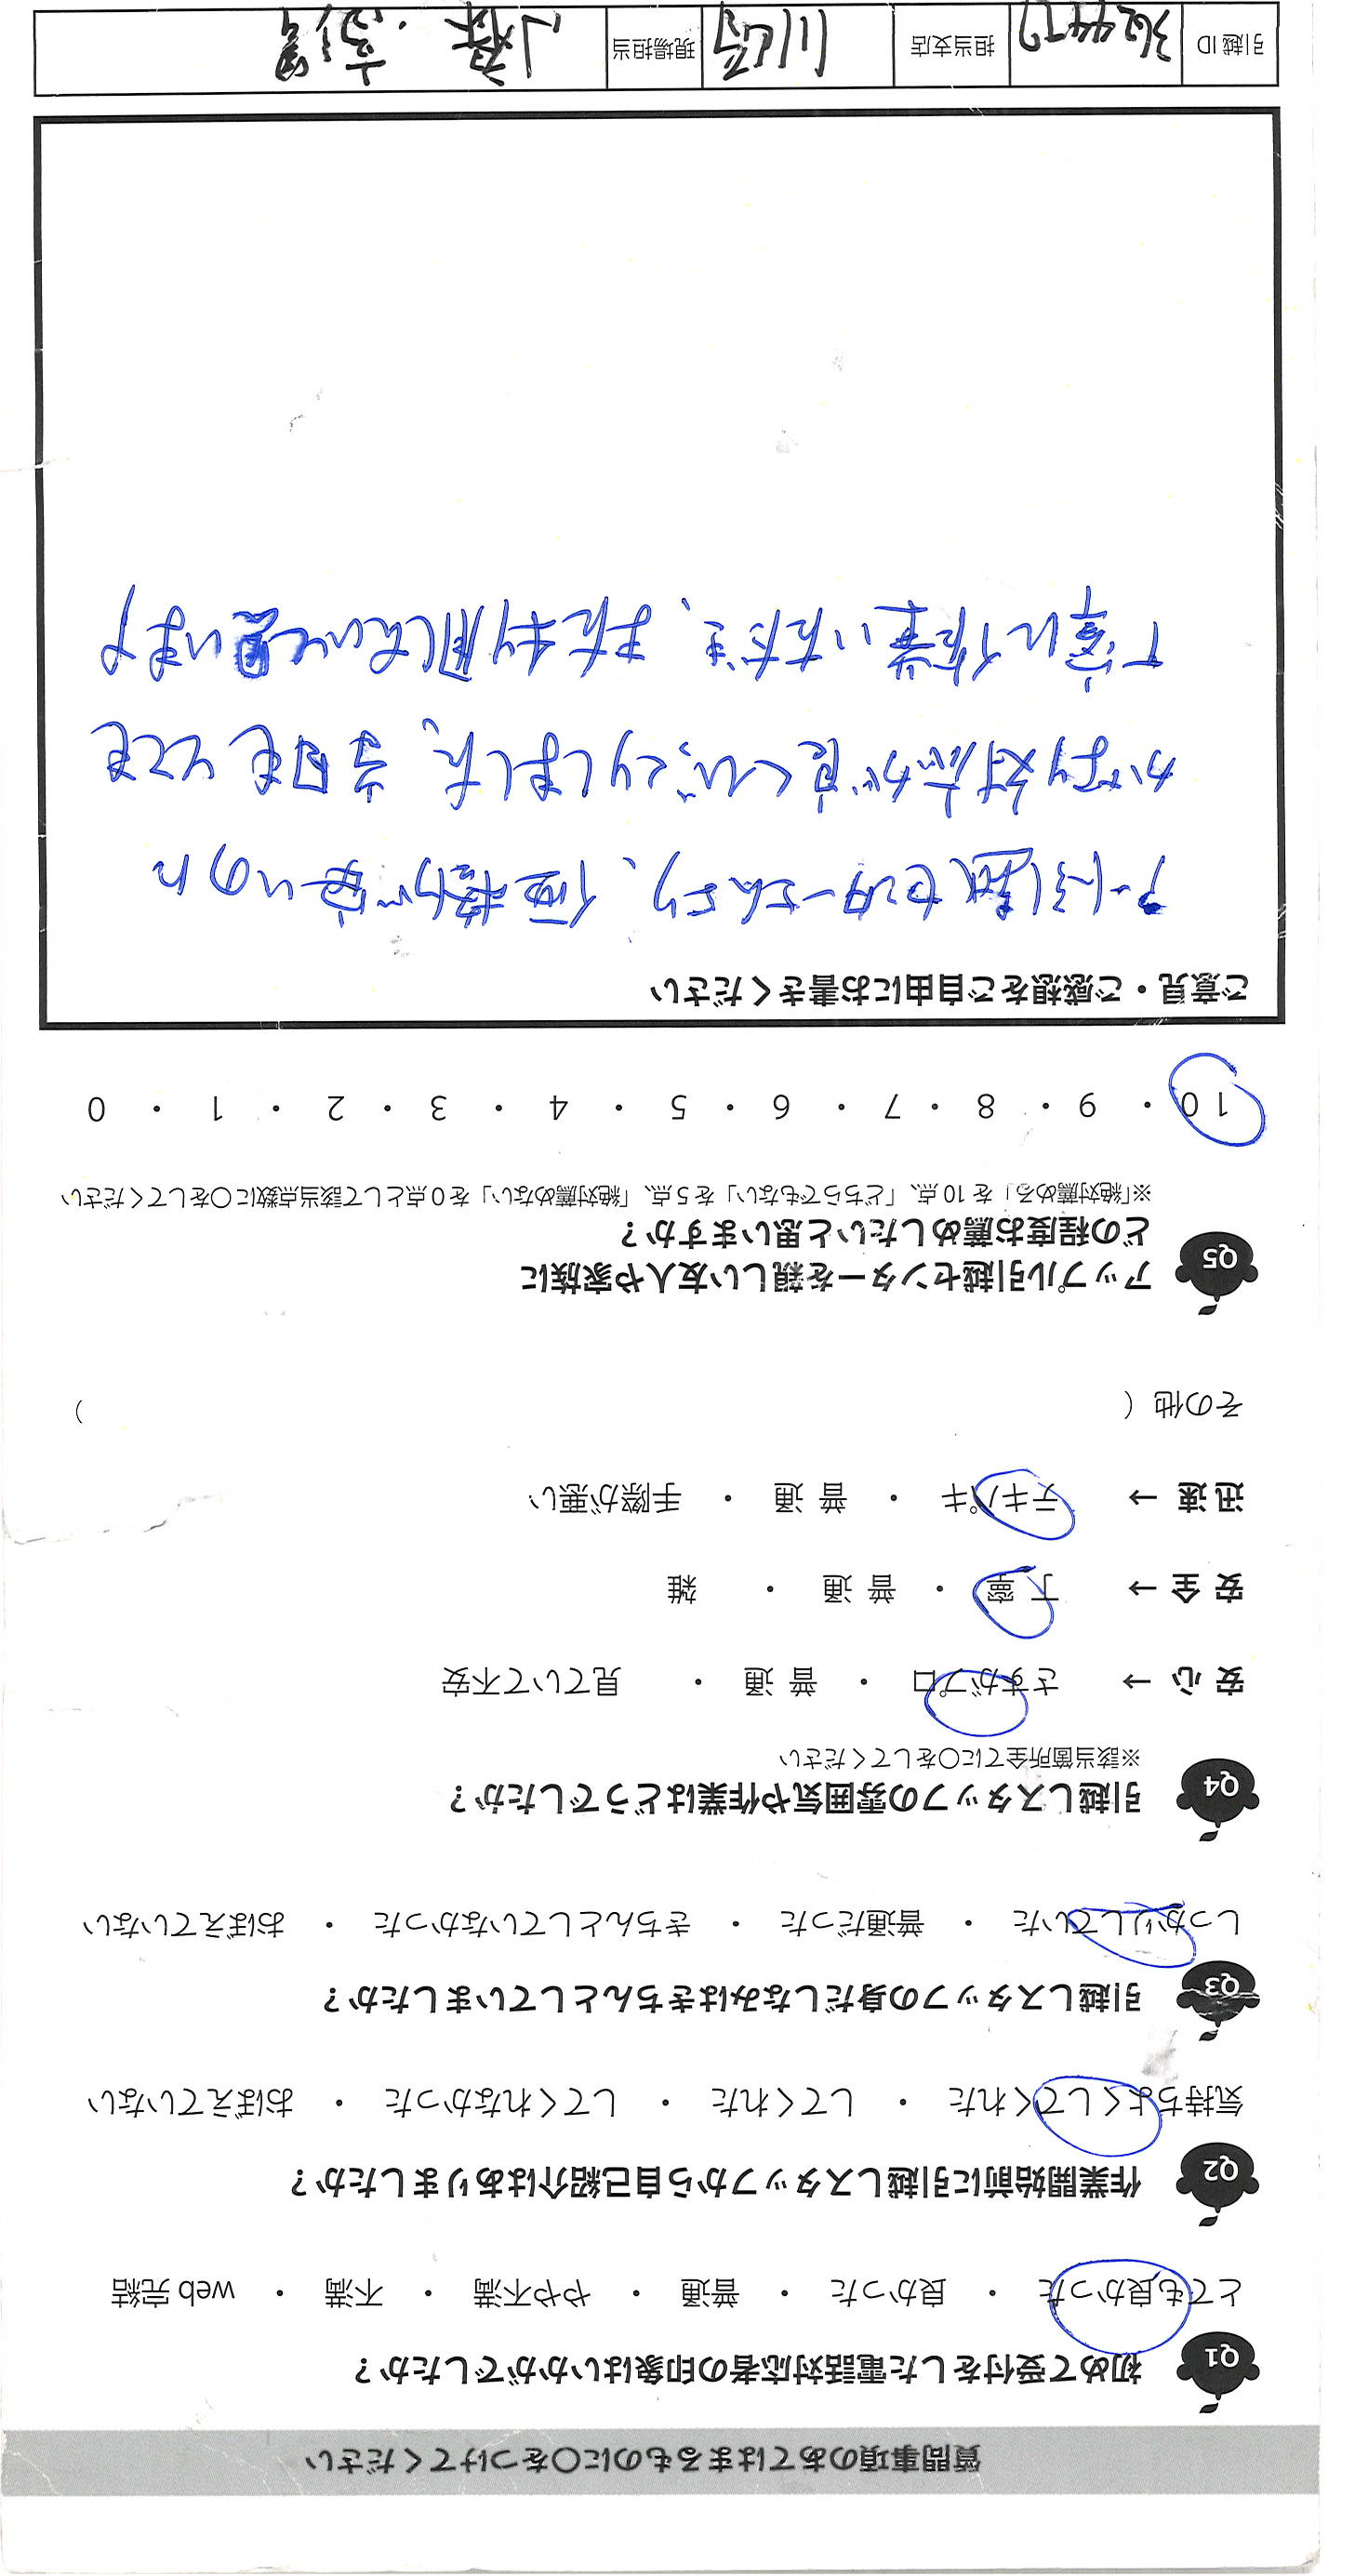 質問事項のあてはまるものに○をつけてください
Q1 初めて受付をした電話対応者の印象はいかがでしたか？
とても良かった ・ 良かった ・ 普通 ・ やや不満 ・ 不満 ・ web 完結
Q2 作業開始前に引越しスタッフから自己紹介はありましたか？
気持ちよくしてくれた ・ してくれた ・ してくれなかった ・ おぼえていない
Q3 引越しスタッフの身だしなみはきちんとしていましたか？
しっかりしていた ・ 普通だった ・ きちんとしていなかった ・ おぼえていない
Q4 引越しスタッフの雰囲気や作業はどうでしたか？
※該当箇所全てに○をしてください
安 心 → さすがプロ ・ 普 通 ・ 見ていて不安
安 全 → 丁 寧 ・ 普 通 ・ 雑
迅 速 → テキパキ ・ 普 通 ・ 手際が悪い
その他（ ）
Q5 アップル引越センターを親しい友人や家族に
どの程度お薦めしたいと思いますか？
※「絶対薦める」を 10 点、「どちらでもない」を 5 点、「絶対薦めない」を 0 点として該当点数に○をしてください
10 ・ 9 ・ 8 ・ 7 ・ 6 ・ 5 ・ 4 ・ 3 ・ 2 ・ 1 ・ 0
ご意見・ご感想をご自由にお書きください
アート引越センターさんより、価格が安いのに
かなり対応が良くびっくりしました。当日もとても
丁寧に作業いただき、また利用したいと思います
引越 ID 担当支店 川崎 現場担当 小森・